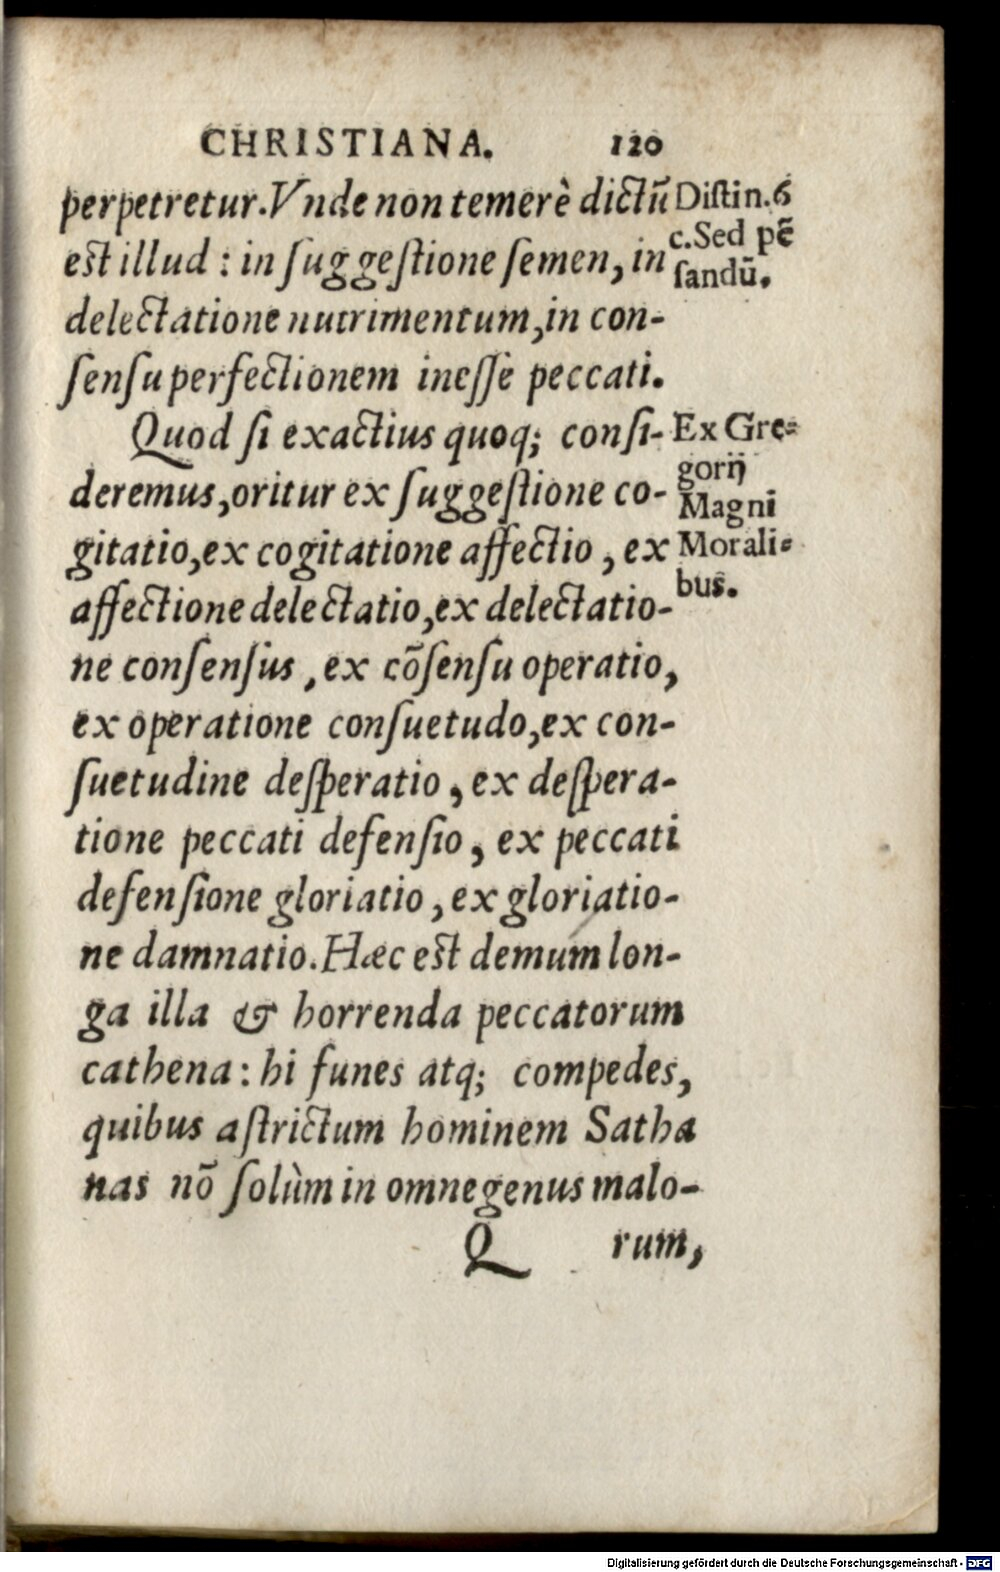 CHRISTIANA. 120
perpetretur. Vnde non temerè dictũ
est illud : in suggestione semen, in
delectatione nutrimentum, in con-
sensu perfectionem inesse peccati.
Distin. 6
c. Sed pẽ
sandũ.
Quod si exactius quoq; consi-
deremus, oritur ex suggestione co-
gitatio, ex cogitatione affectio, ex
affectione delectatio, ex delectatio-
ne consensus, ex cõsensu operatio,
ex operatione consuetudo, ex con-
suetudine desperatio, ex despera-
tione peccati defensio, ex peccati
defensione gloriatio, ex gloriatio-
ne damnatio. Hæc est demum lon-
ga illa & horrenda peccatorum
cathena: hi funes atq; compedes,
quibus astrictum hominem Satha
nas nõ solùm in omne genus malo-
Ex Gre-
gorij
Magni
Morali-
bus.
Q rum,
Digitalisierung gefördert durch die Deutsche Forschungsgemeinschaft - DFG